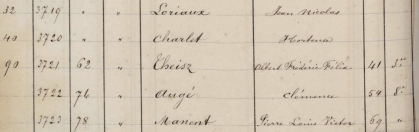 32 3719 " " Loriaux Jean Nicolas
40 3720 " " Charlet Hortense
90 3721 62 " Theisz Albert Frédéric Félix 41 3
3722 76 " Augé Clémence 54 8
3723 78 " Manent Pierre Louis Victor 69 "